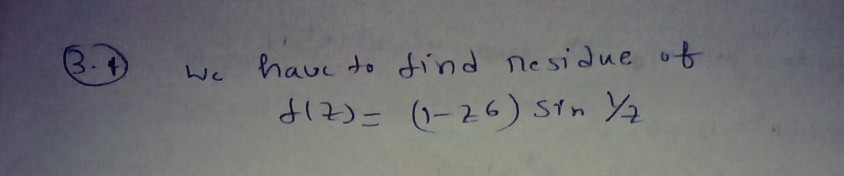 3.4 We have to find residue of
f(z) = (1-z6) sin 1/z